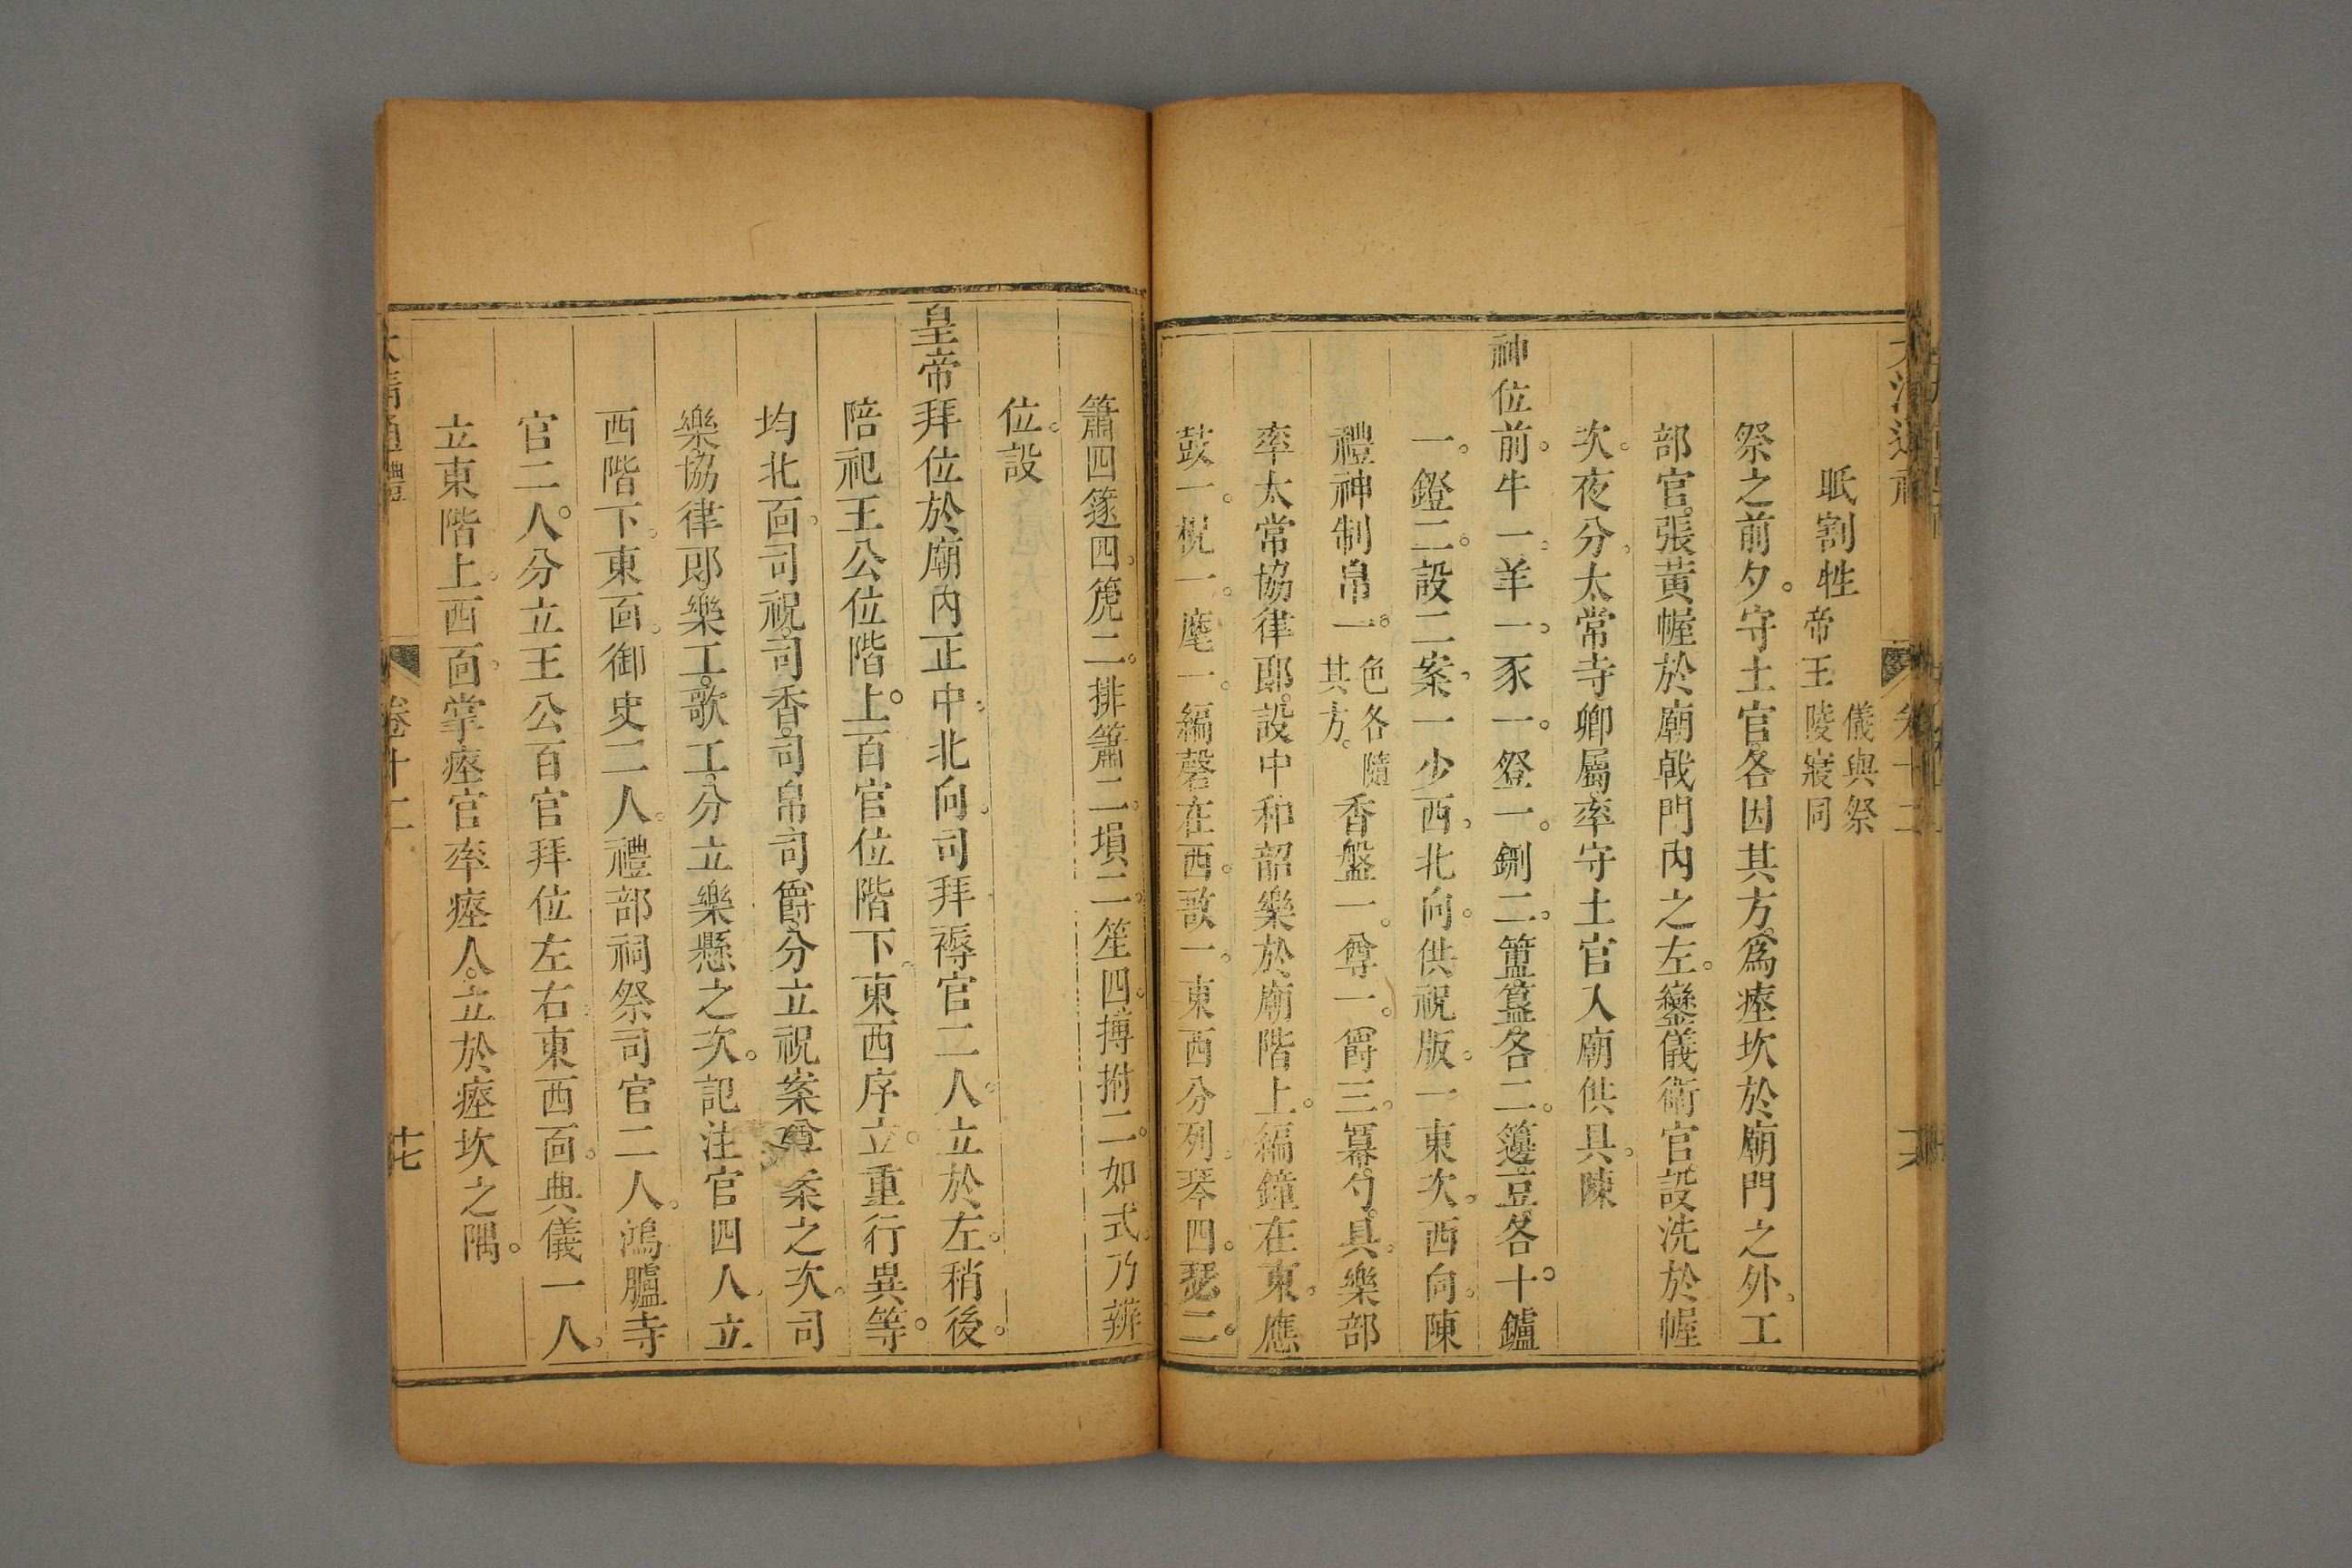 眂割牲帝王儀與祭陵寢同
祭之前夕。守土官。各因其方。爲瘞坎於廟門之外。工
部官。張黃幄於廟戟門內之左。鑾儀衛官設洗於幄
次。夜分。太常寺卿屬率守土官入廟供具。陳
神位前。牛一。羊一。豕一。登一。鉶二。簠簋。各二。籩豆。各十。鑪
一。鐙二。設二案。一少西。北向。供祝版。一東次。西向。陳
禮神制帛一。色各隨其方。香盤一。尊一。爵三。冪勺。具。樂部
率太常協律郎。設中和韶樂於廟階上。編鐘在東。應
鼓一。柷一。麾一。編磬在西。敔一。東西分列。琴四。瑟二。
簫四。篴四。篪二。排簫二。塤二。笙四。搏拊二。如式。乃辨
位。設
皇帝拜位於廟內正中。北向。司拜褥官二人。立於左。稍後。
陪祀王公位階上。百官位階下。東西序立。重行異等。
均北面。司祝。司香。司帛。司爵。分立祝案。尊案之次。司
樂。協律郎。樂工。歌工。分立樂懸之次。記注官四人。立
西階下。東面。御史二人。禮部祠祭司官二人。鴻臚寺
官二人。分立王公百官拜位左右。東西面。典儀一人。
立東階上。西面。掌瘞官率瘞人。立於瘞坎之隅。
大清通禮 卷十二 十七